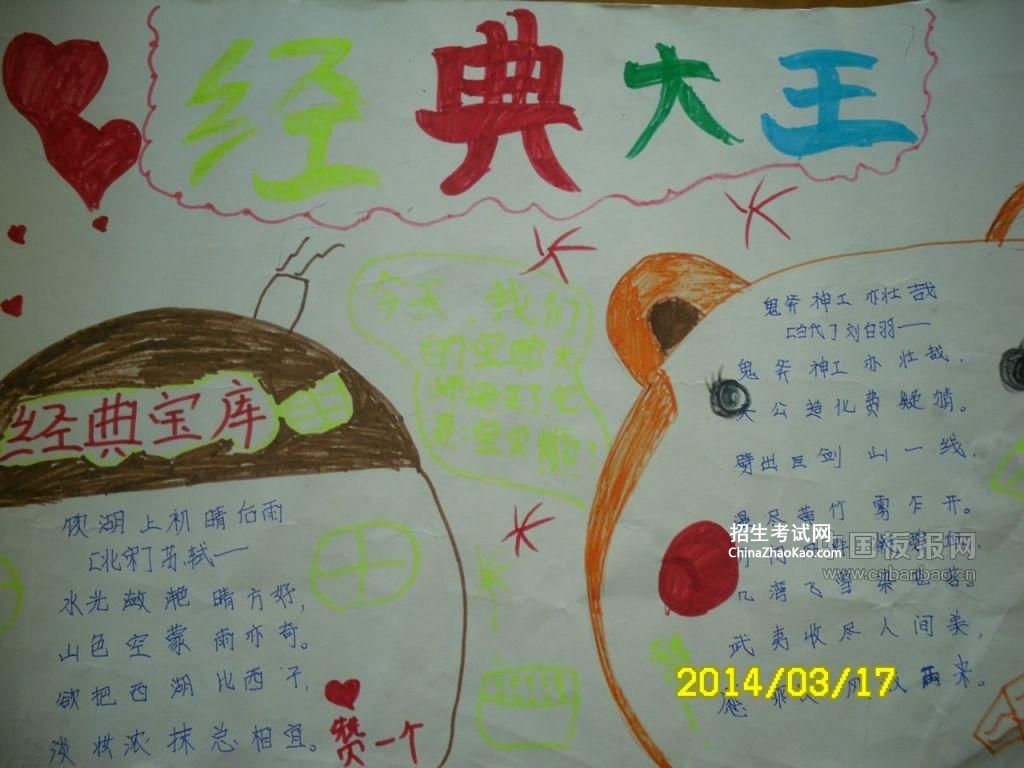 经典大王
今天,我们
的宝典大
经典宝库
饮湖上初晴后雨
[北宋]苏轼——
水光潋滟晴方好,
山色空蒙雨亦奇。
欲把西湖比西子,
淡妆浓抹总相宜。
赞一个
鬼斧神工亦壮哉
[当代]刘白羽——
鬼斧神工亦壮哉,
公造化费疑猜。
劈出巨剑山一线,
尽黄竹雾乍开。
几湾飞雪
武夷收尽人间美,
愿乘 来。
招生考试网
ChinaZhaoKao.com
国板报网
www.cnbanbao.cn
2014/03/17